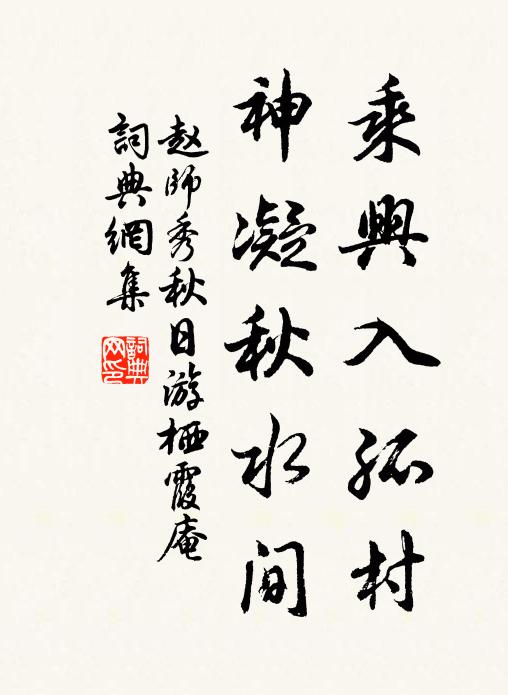 乘興入孤村
神凝秋水间
赵師秀秋日游栖霞庵
詞典網集
詞典网印